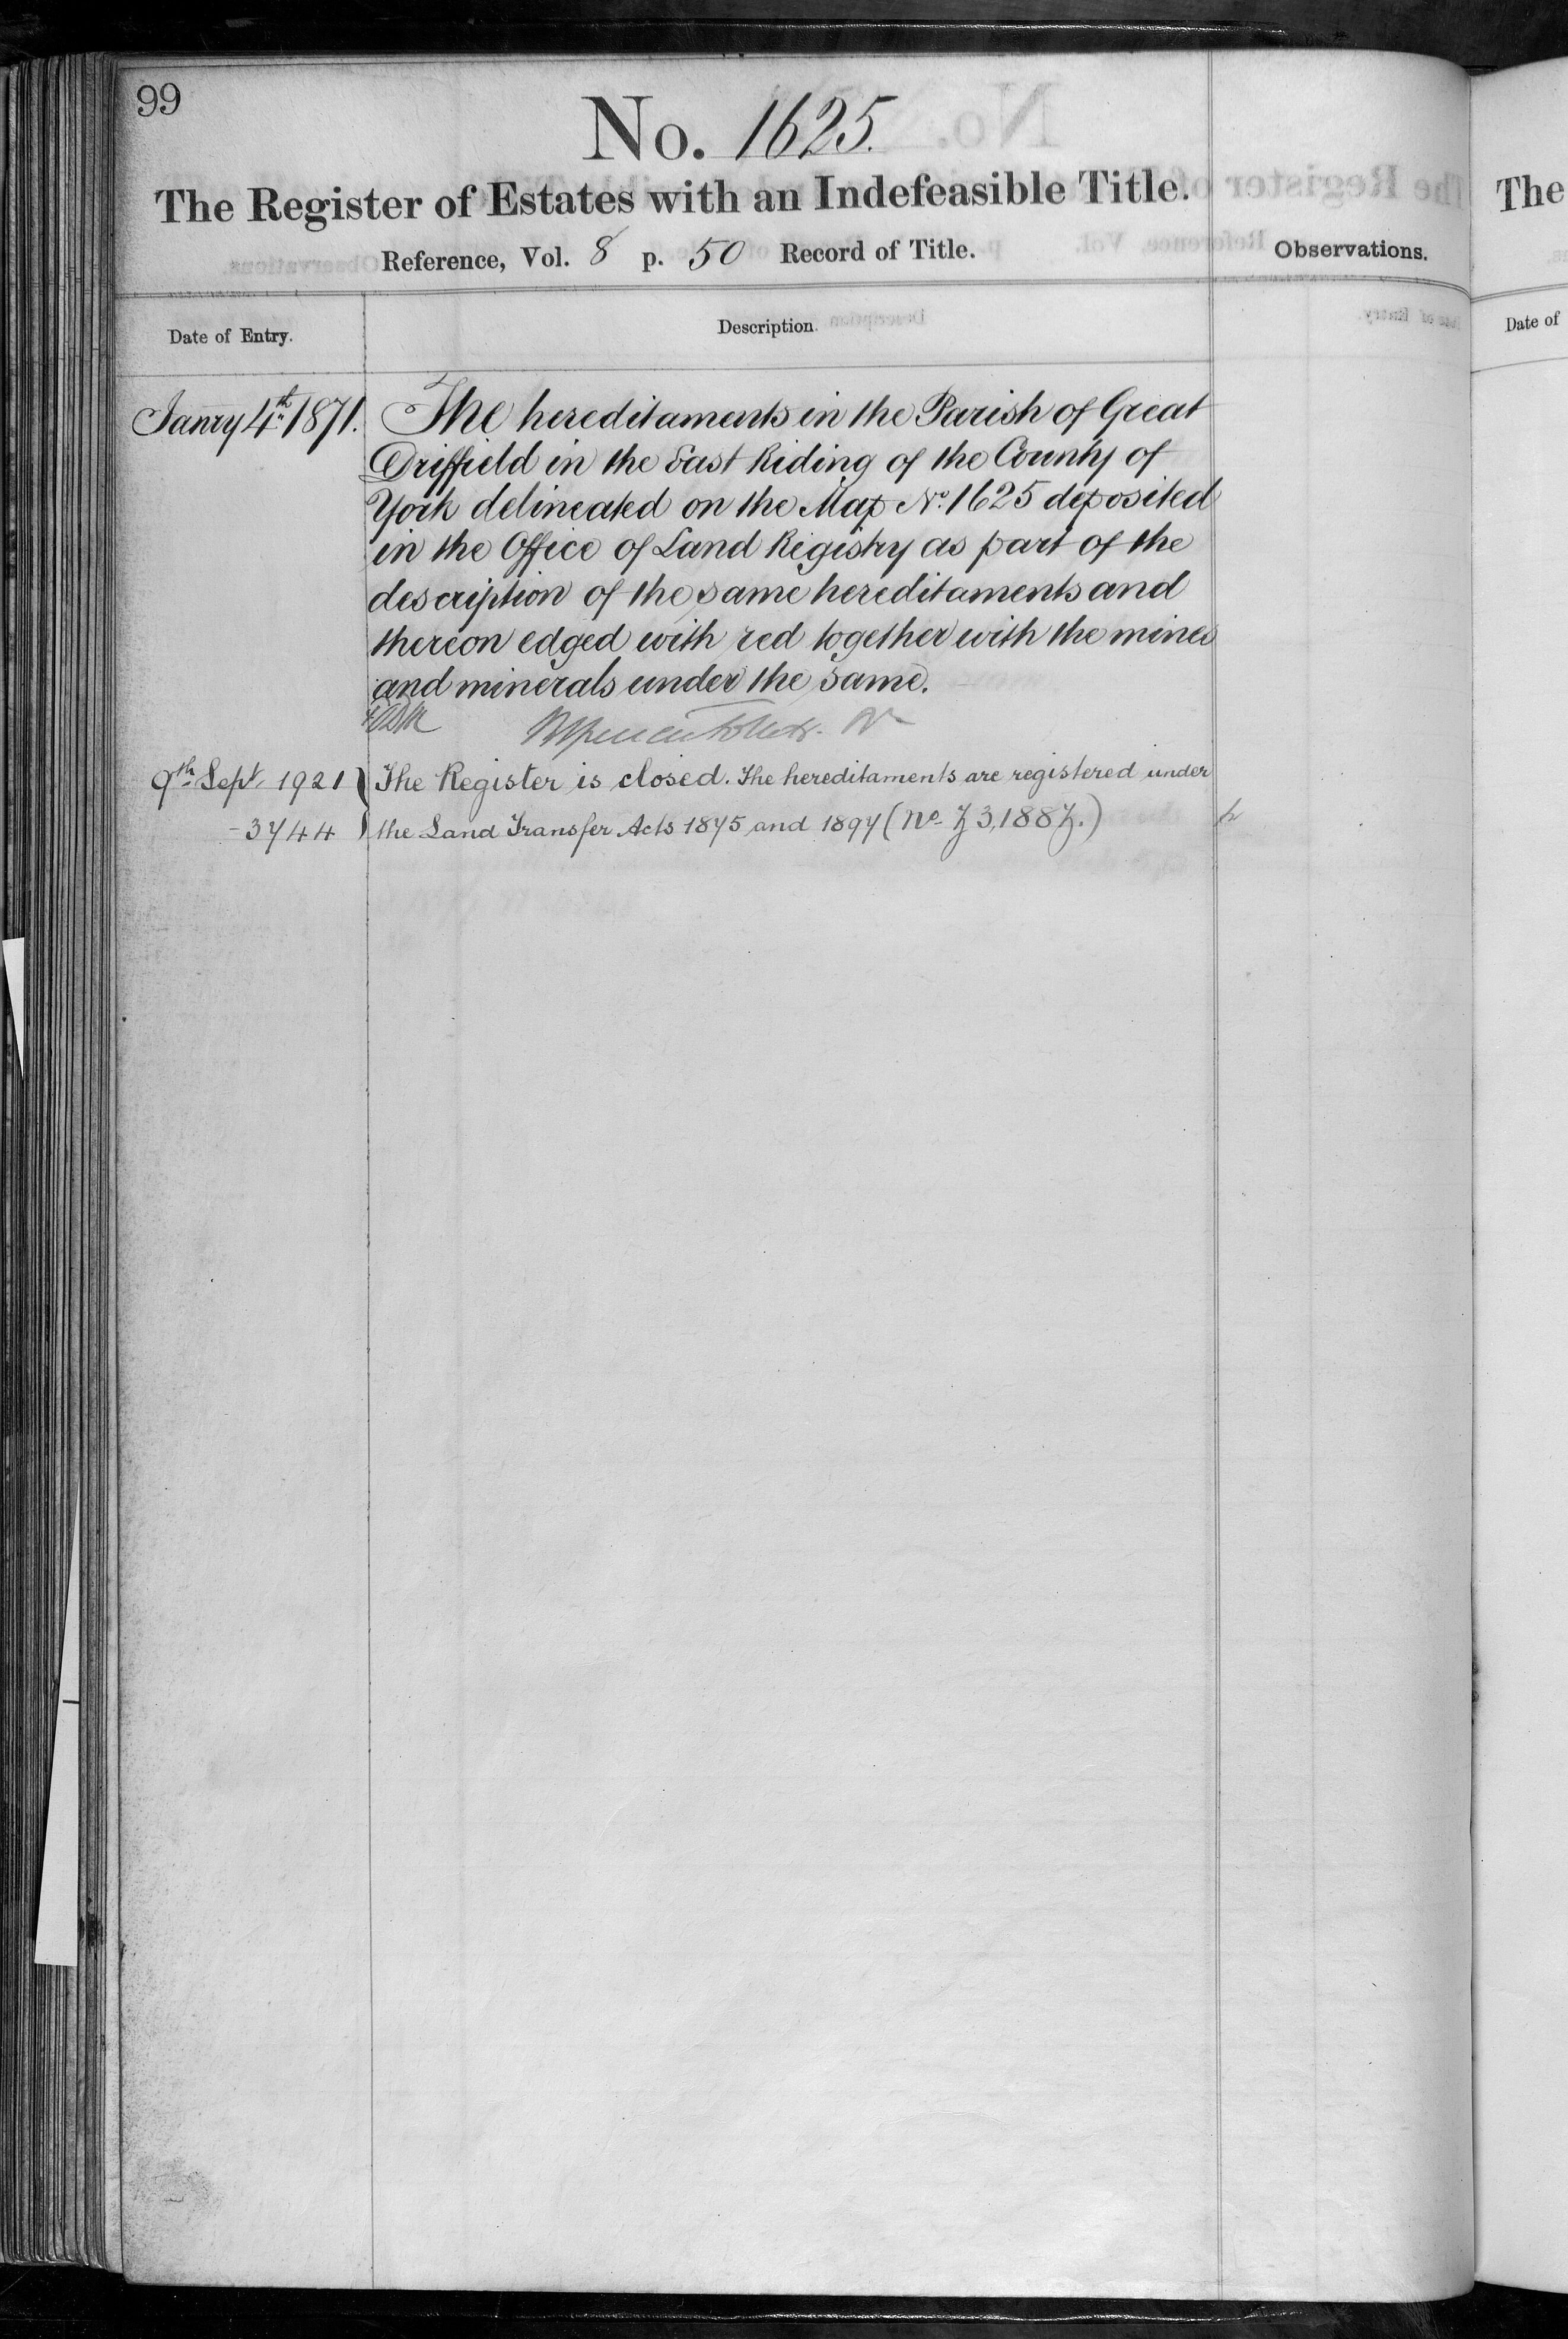 99
No. 1625.
The Register of Estates with an Indefeasible Title.
Reference, Vol. 8 p. 50 Record of Title.
Observations.
Date of Entry.
Description.
Janry 4th 1871.
The hereditaments in the Parish of Great
Driffield in the East Riding of the County of
York delineated on the Map No. 1625 deposited
in the Office of Land Registry as part of the
description of the same hereditaments and
thereon edged with red together with the mines
and minerals under the same.
9th Sept. 1921
3744
The Register is closed. The hereditaments are registered under
the Land Transfer Acts 1875 and 1897 (No. Z 3,188 Z.)
The
Date of